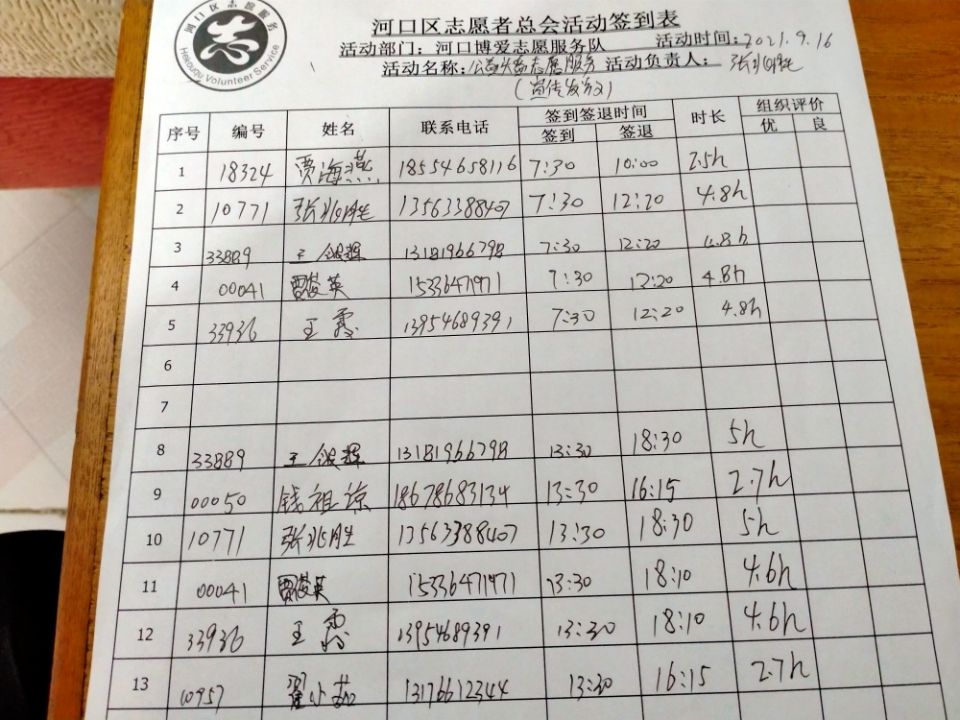 河口区志愿服务
Hekouqu Volunteer Service
河口区志愿者总会活动签到表
活动部门：河口博爱志愿服务队 活动时间：2021.9.16
活动名称：公益头条志愿服务 活动负责人：张兆胜
（宣传发文）
序号 编号 姓名 联系电话 签到签退时间 时长 组织评价
签到 签退 优 良
1 18324 贾海燕 18554658116 7:30 10:00 2.5h
2 10771 张兆胜 13563388407 7:30 12:20 4.8h
3 33889 王 13181966798 7:30 12:20 4.8h
4 00041 贾俊英 15336471971 7:30 12:20 4.8h
5 33936 王霞 13954689391 7:30 12:20 4.8h
6
7
8 33889 王 13181966798 13:30 18:30 5h
9 00050 钱祖谅 18678683134 13:30 16:15 2.7h
10 10771 张兆胜 13563388407 13:30 18:30 5h
11 00041 贾俊英 15336471971 13:30 18:10 4.6h
12 33936 王霞 13954689391 13:30 18:10 4.6h
13 10957 翟小茹 13176612344 13:30 16:15 2.7h